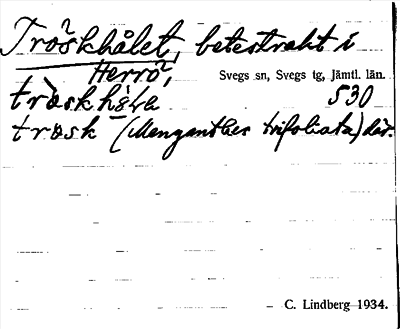 Tröskhålet, betestrakt i
Herrö,
Svegs sn, Svegs tg, Jämtl. län.
530
tròskhá̱la
trosk (Menyanthes trifoliata) där.
C. Lindberg 1934.